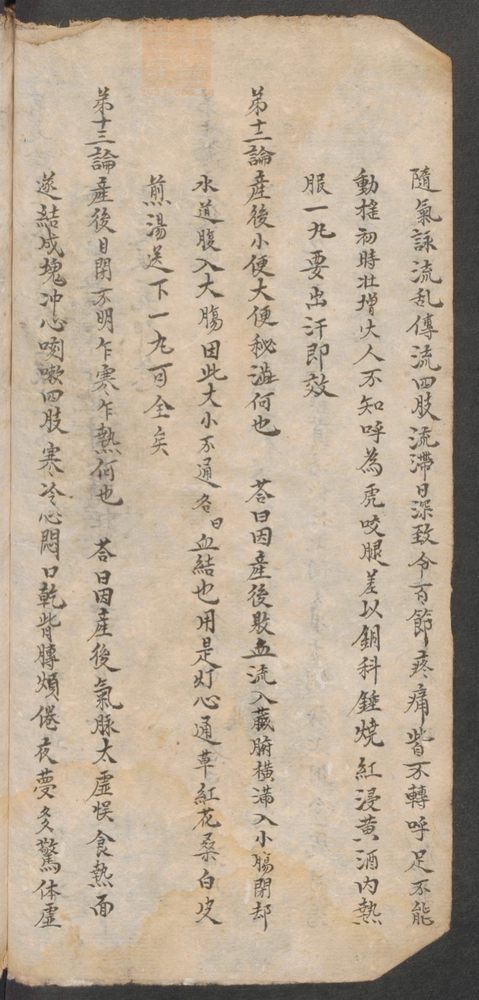 隨氣詠流乱傳流四肢流滯日深致令百節疼痛皆不轉呼足不能
動搖初時壯增火人不知呼為虎咬腿差以銅科錘燒紅浸黄酒内熱
服一丸要出汗即效
苐十二論産後小便大便秘澁何也 荅曰因産後敗血流入藏腑横滿入小膓閉却
水道腹入大膓因此大小不通各曰血結也用是灯心通草紅花桑白皮
煎湯送下一丸可全矣
苐十三論産後目閉不明乍寒乍熱何也 荅曰因産後氣脉太虚悮食熱面
遂結成塊冲心咳嗽四肢寒冷心悶口乾背膊煩倦夜夢多驚体虚